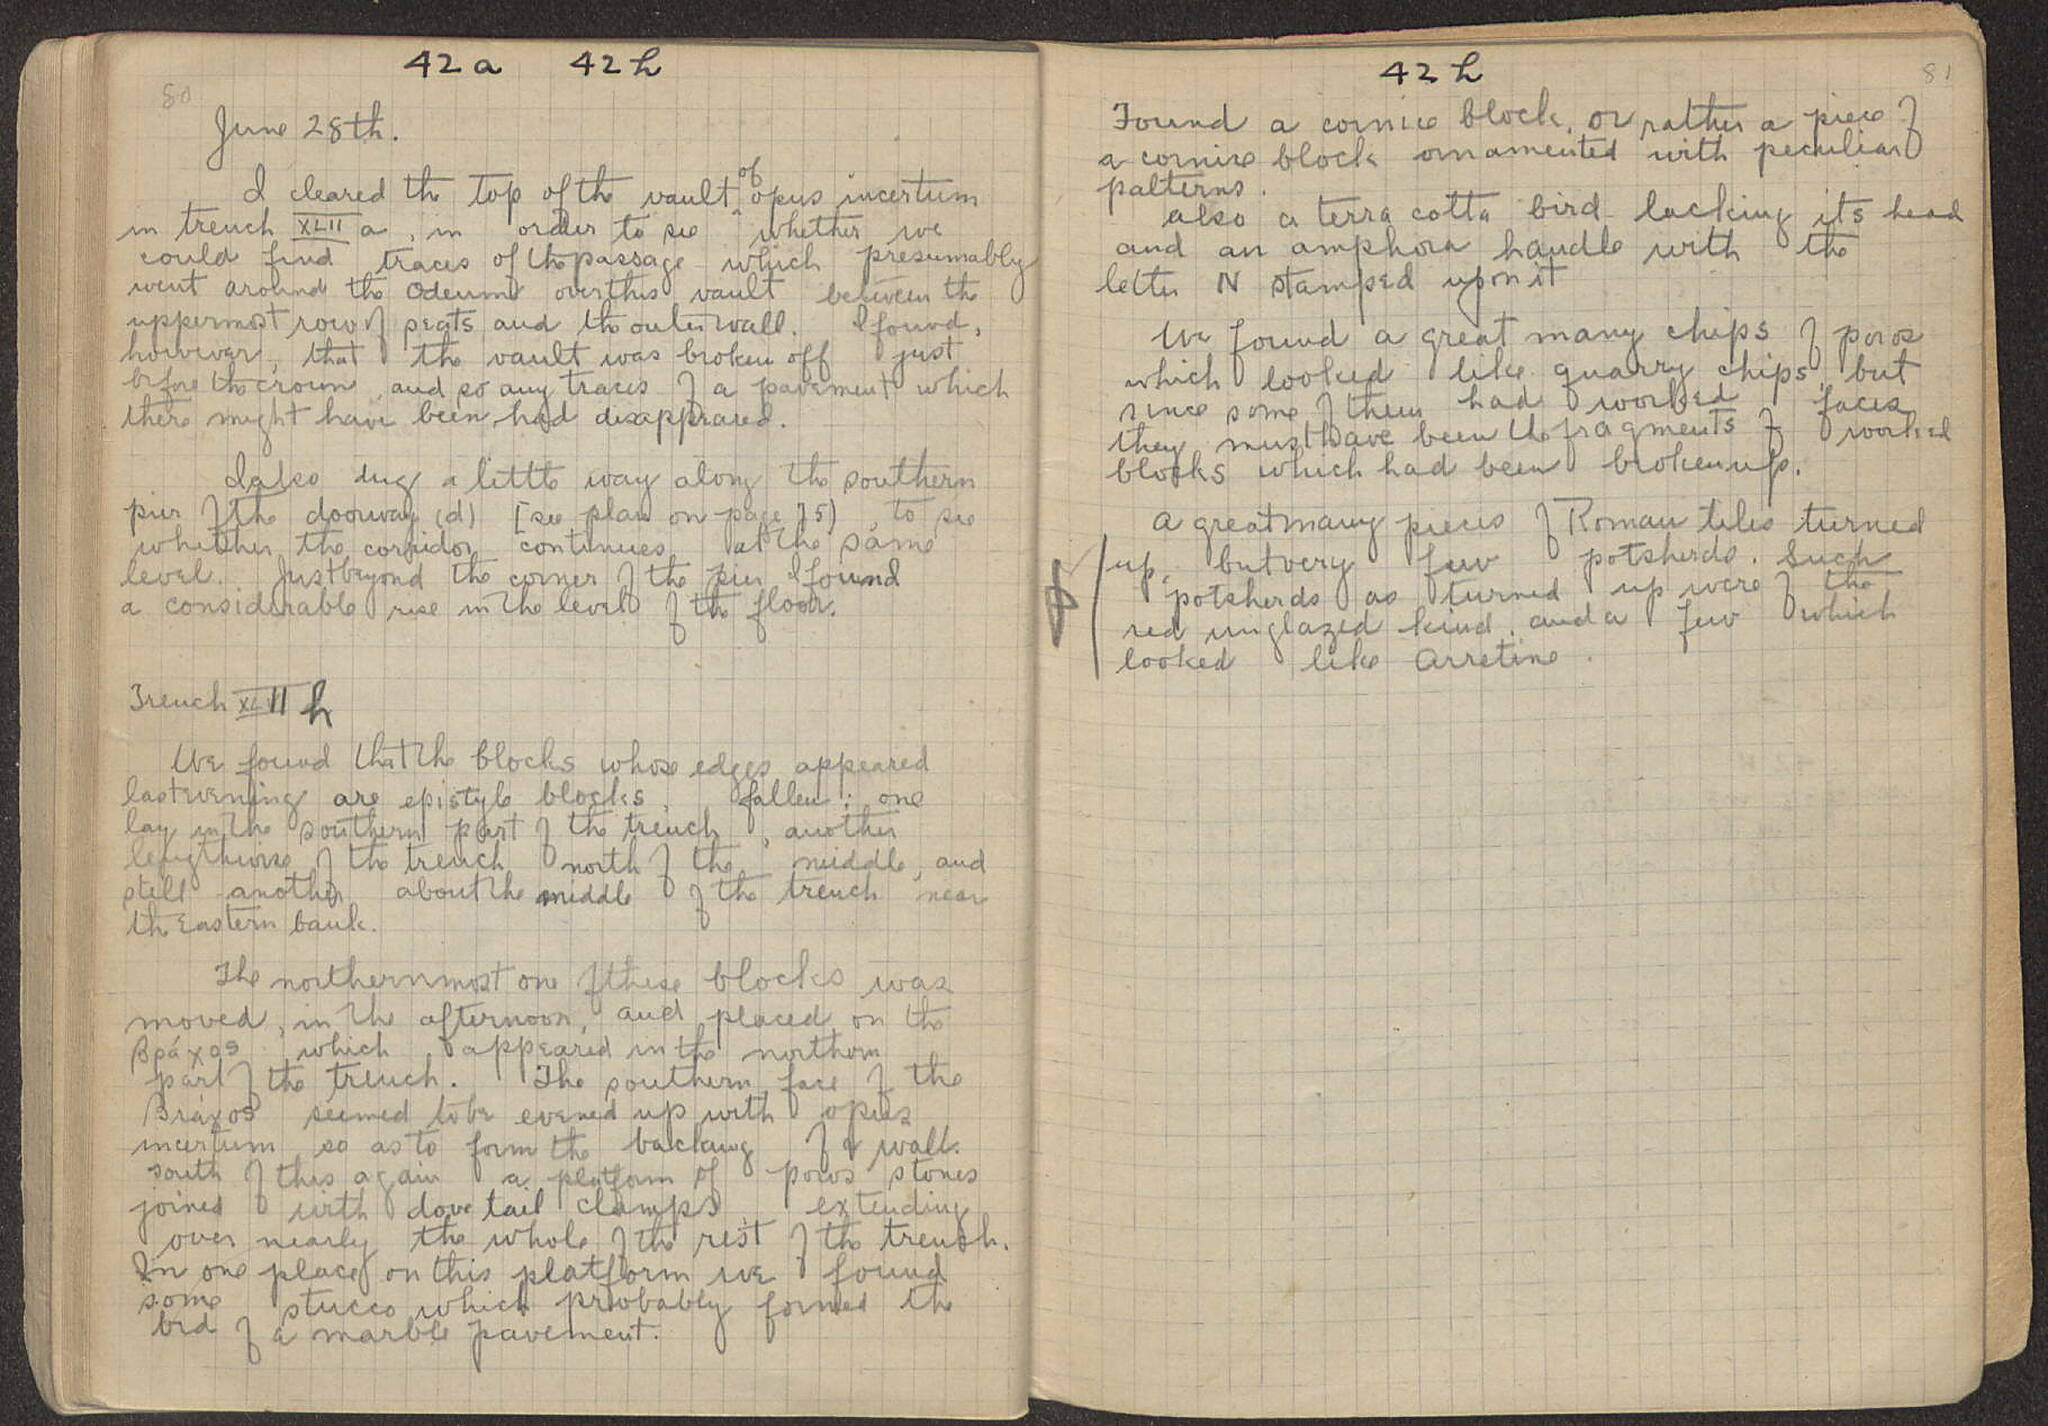 42 a 42 h
80
June 28th.
I cleared the top of the vault of opus incertum
in trench XLII a, in order to see whether we
could find traces of the passage which presumably
went around the Odeum over this vault between the
uppermost row of seats and the outer wall. I found,
however, that the vault was broken off just
before the crown, and so any traces of a pavement which
there might have been had disappeared.
I also dug a little way along the southern
pier of the doorway (d) [see plan on page 75), to see
whether the corridor continues at the same
level. Just beyond the corner of the pier I found
a considerable rise in the level of the floor.
Trench XLII h
We found that the blocks whose edges appeared
last evening are epistyle blocks, fallen; one
lay in the southern part of the trench, another
lengthwise of the trench north of the middle, and
still another about the middle of the trench near
the eastern bank.
The northernmost one of these blocks was
moved, in the afternoon, and placed on the
βράχος which appeared in the northern
part of the trench. The southern face of the
βράχος seemed to be evened up with opus
incertum so as to form the backing of a wall.
South of this again a platform of poros stones
joined with dove tail clamps, extending
over nearly the whole of the rest of the trench.
In one place on this platform we found
some stucco which probably formed the
bed of a marble pavement.
42 h
81
Found a cornice block, or rather a piece of
a cornice block ornamented with peculiar
patterns.
Also a terra cotta bird lacking its head
and an amphora handle with the
letter N stamped upon it
We found a great many chips of poros
which looked like quarry chips, but
since some of them had worked faces
they must have been the fragments of worked
blocks which had been broken up.
A great many pieces of Roman tiles turned
up, but very few potsherds. Such
potsherds as turned up were of the
red unglazed kind, and a few which
looked like Arretine.